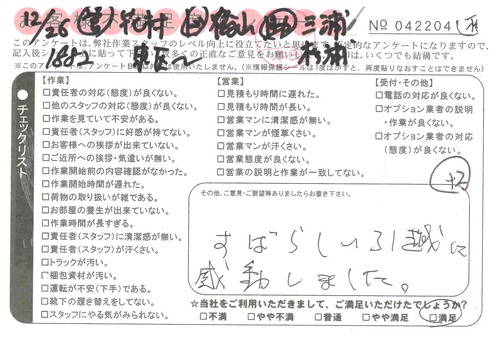 12/26 営 松山 三浦
1882 東京〜 杉浦
№ 042204
このアンケートは、弊社作業スタッフのレベル向上に役立てたいと思います。
チェックリスト
【作業】
□責任者の対応(態度)が良くない。
□他のスタッフの対応(態度)が良くない。
□作業を見ていて不安がある。
□責任者(スタッフ)に好感が持てない。
□お客様への挨拶が出来ていない。
□ご近所への挨拶・気遣いが無い。
□作業開始前の内容確認がなかった。
□作業開始時間が遅れた。
□荷物の取り扱いが雑である。
□お部屋の養生が出来ていない。
□作業時間が長すぎる。
□責任者(スタッフ)に清潔感が無い。
□責任者(スタッフ)が汗くさい。
□トラックが汚い。
□梱包資材が汚い。
□運転が不安(下手)である。
□靴下の履き替えをしてない。
□スタッフにやる気がみられない。
【営業】
□見積もり時間に遅れた。
□見積もり時間が長い。
□営業マンに清潔感が無い。
□営業マンが煙草くさい。
□営業マンが汗くさい。
□営業態度が良くない。
□営業の説明と作業が一致してない。
【受付・その他】
□電話の対応が良くない。
□オプション業者の説明
・作業が良くない。
□オプション業者の対応
(態度)が良くない。
+2
その他、ご意見・ご要望等ありましたらお書き下さい。
すばらしい引越に
感動しました。
☆当社をご利用いただきまして、ご満足いただけたでしょうか?
□不満 □やや不満 □普通 □やや満足 □満足